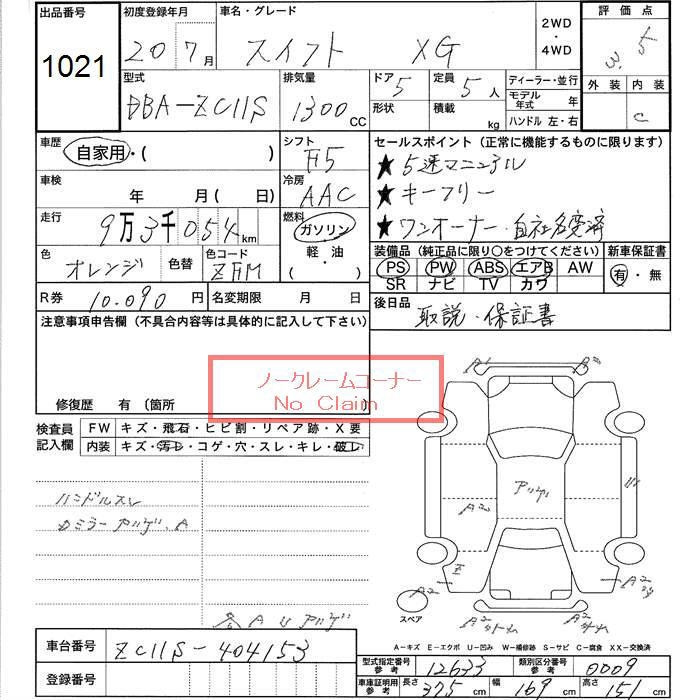 出品番号 初度登録年月 車名・グレード 2WD ・ 4WD 評価点
1021 20 7月 スイフト XG 3.5
型式 排気量 ドア 5 定員 5人 ディーラー・並行 外装 内装
DBA-ZC11S 1300 CC 形状 積載 kg モデル年式 年 C
ハンドル 左・右
車歴 自家用・( ) シフト F5 セールスポイント (正常に機能するものに限ります)
★5速マニュアル
車検 年 月( 日) 冷房 AAC ★キーフリー
走行 9万3千054km 燃料 ガソリン ★ワンオーナー・自社名変済
軽・油
( )
装備品 (純正品に限り○をつけてください) 新車保証書
色 オレンジ 色替 色コード ZFM PS PW ABS エアB AW 有・無
SR ナビ TV カワ
R券 10.090円 名変期限 月 日 後日品 取説・保証書
注意事項申告欄 (不具合内容等は具体的に記入して下さい)
ノークレームコーナー
No Claim
修復歴 有 (箇所
検査員記入欄 FW キズ・飛石・ヒビ割・リペア跡・X要
内装 キズ・汚レ・コゲ・穴・スレ・キレ・破レ
A' B
アルゲ
A2
ハンドルスレ
カミラー アルゲ.A
A U アルゲ
スペア
A2 A2
A-キズ E-エクボ U-凹み W-補修跡 S-サビ C-腐食 XX-交換済
車台番号 ZC11S-404153
型式指定番号 参考 12633 類別区分番号 参考 0009
登録番号
車庫証明用 参考 長さ 375cm 幅 169cm 高さ 151cm